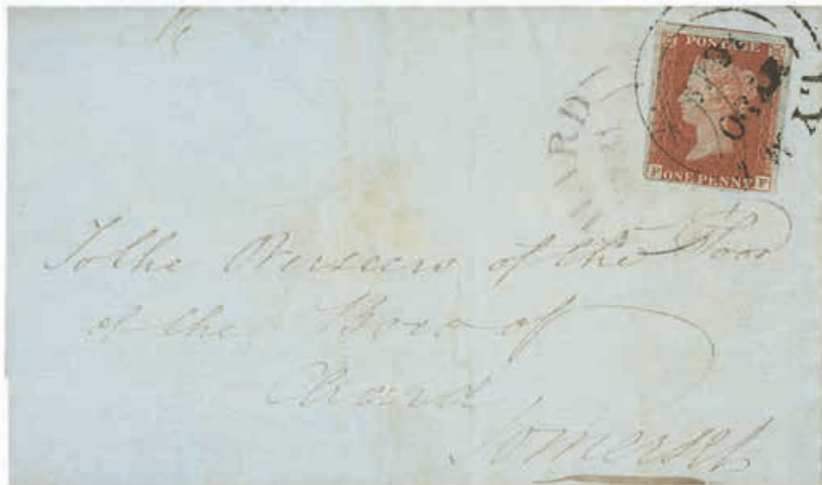 POSTAGE
LY
HARD
F ONE PENNY F
To the Overseers of the Poor
of the Boro of
Chard
Somerset